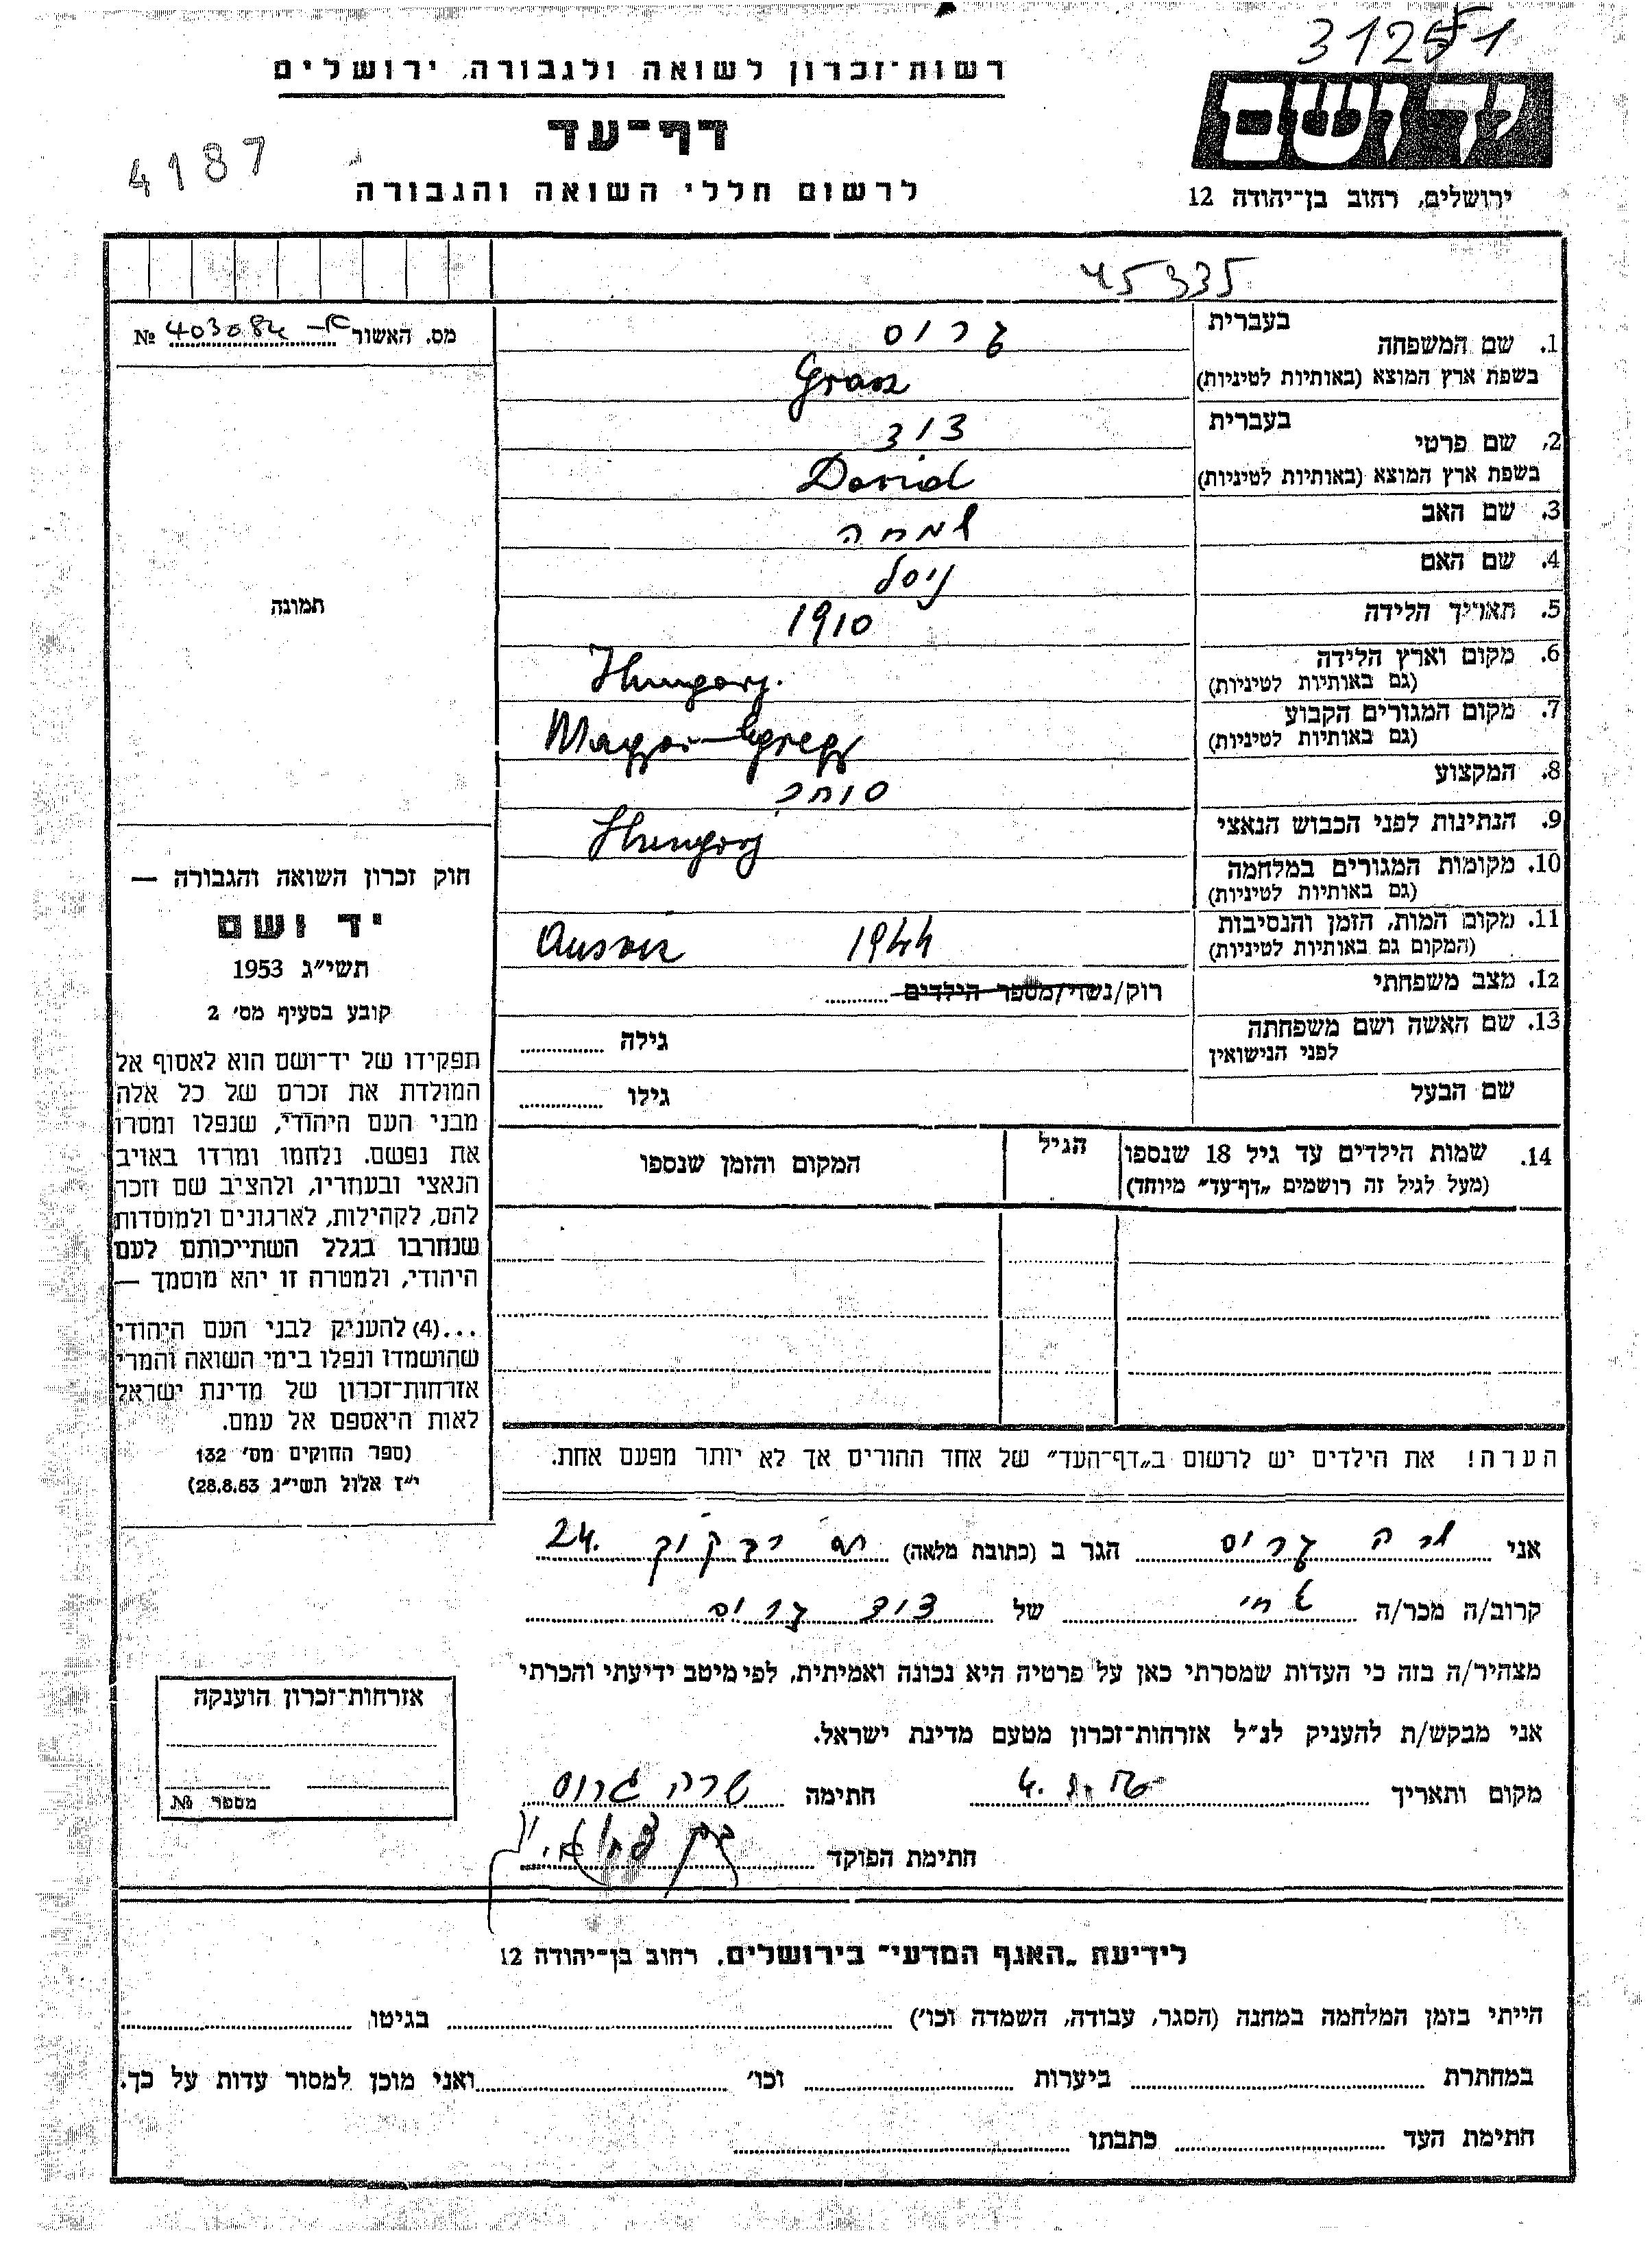 31251
רשות־זכרון לשואה ולגבורה, ירושלים
יד ושם
דף־עד
4187
לרשום חללי השואה והגבורה
ירושלים, רחוב בן־יהודה 12
45335
מס. האשור 403084 №
1. שם המשפחה בעברית גרוס
בשפת ארץ המוצא (באותיות לטיניות) Grosz
2. שם פרטי בעברית דוד
בשפת ארץ המוצא (באותיות לטיניות) David
3. שם האב שמחה
4. שם האם
5. תאריך הלידה 1910
6. מקום וארץ הלידה Hungary.
(גם באותיות לטיניות)
7. מקום המגורים הקבוע
(גם באותיות לטיניות)
8. המקצוע סוחר
9. הנתינות לפני הכבוש הנאצי Hungary
10. מקומות המגורים במלחמה
(גם באותיות לטיניות)
11. מקום המות, הזמן והנסיבות 1944
(המקום גם באותיות לטיניות)
12. מצב משפחתי רוק/נשוי/מספר הילדים
13. שם האשה ושם משפחתה גילה
לפני הנישואין
שם הבעל גילו
14. שמות הילדים עד גיל 18 שנספו הגיל המקום והזמן שנספו
(מעל לגיל זה רושמים "דף־עד" מיוחד)
תמונה
חוק זכרון השואה והגבורה —
יד ושם
תשי"ג 1953
קובע בסעיף מס' 2
תפקידו של יד־ושם הוא לאסוף אל
המולדת את זכרם של כל אלה
מבני העם היהודי, שנפלו ומסרו
את נפשם. נלחמו ומרדו באויב
הנאצי ובעוזריו, ולהציב שם וזכר
להם, לקהילות, לארגונים ולמוסדות
שנחרבו בגלל השתייכותם לעם
היהודי, ולמטרה זו יהא מוסמך —
...(4) להעניק לבני העם היהודי
שהושמדו ונפלו בימי השואה והמרי
אזרחות־זכרון של מדינת ישראל
לאות היאספם אל עמם.
(ספר החוקים מס' 132
י"ז אלול תשי"ג 28.8.53)
הערה! את הילדים יש לרשום ב"דף־העד" של אחד ההורים אך לא יותר מפעם אחת.
אני שרה גרוס הגר ב (כתובת מלאה) 24.
קרוב/ה מכר/ה של דוד גרוס
מצהיר/ה בזה כי העדות שמסרתי כאן על פרטיה היא נכונה ואמיתית, לפי מיטב ידיעתי והכרתי
אני מבקש/ת להעניק לנ"ל אזרחות־זכרון מטעם מדינת ישראל.
מקום ותאריך חתימה שרה גרוס
חתימת הפוקד
אזרחות־זכרון הוענקה
מספר №
לידיעת "האגף המדעי" בירושלים, רחוב בן־יהודה 12
הייתי בזמן המלחמה במחנה (הסגר, עבודה, השמדה וכו') בגיטו
במחתרת ביערות וכו' ואני מוכן למסור עדות על כך.
חתימת העד כתבתו